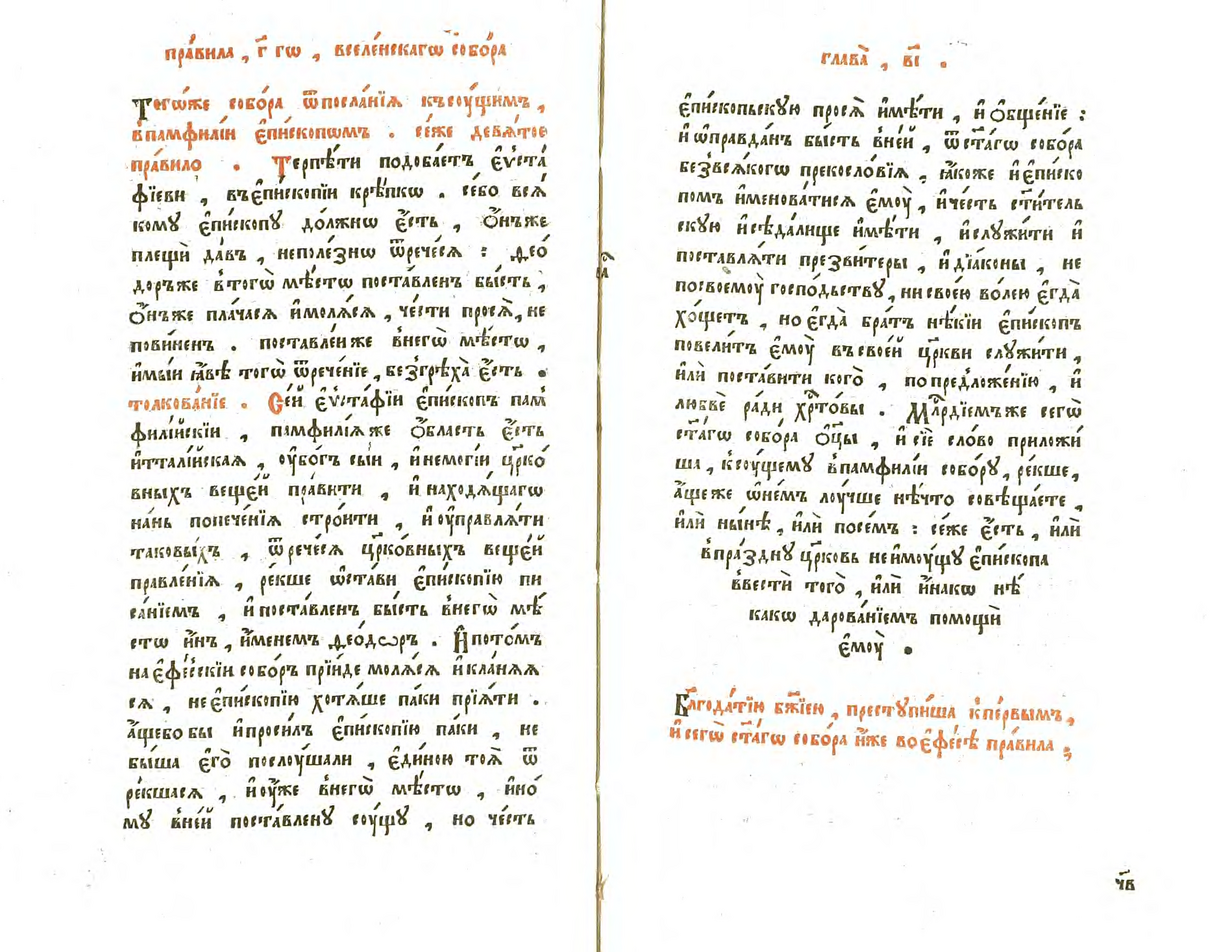 пра́вила , г҃ гѡ , вселе́нскагѡ собо́ра
Тогѡ́же собо́ра ѿпосла́нїѧ късꙋ́щимъ ,
впамфилі́и є҆пи́скопѡмъ . се́же девѧ́тое
пра́вило . Терпѣ́ти подоба́етъ є҆ѵста́
фїеви , въє҆пи́скопїи крѣ́пкѡ . се́бо всѧ́
кому є҆пи́скопꙋ до́лжнѡ є҆́сть , ѻ҆́нъже
плещѝ да́въ , неполе́знѡ ѿрече́сѧ : ѳео́
доръже втогѡ̀ мѣ́стѡ поста́вленъ бы́сть ,
ѻ҆́нъже пла́часѧ и҆молѧ́сѧ , че́сти просѧ̀ , не
пови́ненъ . поста́вленже внегѡ̀ мѣ́стѡ ,
и҆мы́и ꙗ҆́вѣ тогѡ̀ ѿрече́нїе , безгрѣха̀ є҆́сть .
толкова́нїе . Се́й є҆ѵста́фїи є҆пи́скопъ пам
филі́йскїи , памфилі́ѧже ѻ҆́бласть є҆́сть
и҆ттали́йская , ᲂу҆бо́гъ сы́и , и҆немоги́и цр҃ко́
вныхъ веще́й пра́вити , и҆находѧ́щагѡ
на́нь попече́нїѧ стро́ити , и҆ᲂу҆правлѧ́ти
таковы́хъ , ѿрече́сѧ цр҃ко́вныхъ веще́й
правле́нїѧ , ре́кше ѡ҆ста́ви є҆пи́скопїю пи
са́нїемъ , и҆поста́вленъ бы́сть внегѡ̀ мѣ́
стѡ и҆́нъ , и҆́менемъ ѳео́дѡръ . И҆пото́мъ
нає҆фе́сскїи собо́ръ прїи́де молѧ́сѧ и҆кла́няѧ
сѧ , неє҆пи́скопїю хотѧ́ше па́ки прїѧ́ти .
а҆́щебо бы и҆проси́лъ є҆пи́скопїю па́ки , не
бы́ша є҆го̀ послꙋ́шали , є҆ди́ною тоѧ̀ ѿ
ре́кшаѧся , и҆ᲂу҆́же внегѡ̀ мѣ́стѡ , и҆но́
мꙋ вне́й поста́вленꙋ сꙋ́щꙋ , но че́сть
глава̀ , в҃і .
є҆пи́скопьскꙋю просѧ̀ и҆мѣ́ти , и҆ѻ҆бще́нїе :
и҆ѡ҆правда́нъ бы́сть вне́й , ѿст҃а́гѡ собо́ра
безвсѧ́когѡ прекосло́вїѧ , ꙗ҆́коже и҆є҆пи́ско
помъ и҆менова́тисѧ є҆мꙋ̀ , и҆че́сть ст҃и́тель
скꙋю и҆сѣда́лище и҆мѣ́ти , и҆слꙋжи́ти и҆
поставлѧ́ти презви́теры , и҆дїа́коны , не
посвоемꙋ̀ госпо́дьствꙋ , нисвое́ю во́лею є҆гда̀
хо́щетъ , но є҆гда̀ бра́тъ нѣ́кїи є҆пи́скопъ
повели́тъ є҆мꙋ̀ въсвое́й цр҃кви слꙋжи́ти ,
и҆лѝ поста́вити кого̀ , попредложе́нїю , и҆
любвѐ ра́ди хр҃то́вы . Мл҃рдїемъже сегѡ̀
ст҃а́гѡ собо́ра ѻ҆ц҃ы̀ , и҆сїѐ сло́во приложи́
ша , ксꙋ́щемꙋ впамфилі́и собо́рꙋ , ре́кше ,
а҆́щеже ѡ҆не́мъ лꙋ́чше нѣ́что совѣща́ете ,
и҆лѝ ны́нѣ , и҆лѝ посе́мъ : се́же є҆́сть , и҆лѝ
впра́зднꙋ цр҃ковь неи҆мꙋ́щꙋ є҆пи́скопа
ввестѝ того̀ , и҆лѝ и҆на́кѡ нѣ́
какѡ дарова́нїемъ помощѝ
є҆мꙋ̀ .
Бл҃года́тїю бж҃їею , преступи́ша кпе́рвымъ ,
и҆сегѡ̀ ст҃а́гѡ собо́ра и҆́же воє҆фе́сѣ пра́вила ;
ч҃в